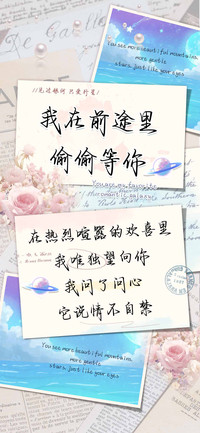 You see more beautiful mountains,
more poetic
stars, just like your eyes
//见过银河 只爱行星/
我在前途里
偷偷等你
在热烈喧嚣的欢喜里
我唯独望向你
我问了问心
它说情不自禁
You see more beautiful mountains,
more poetic
stars, just like your eyes